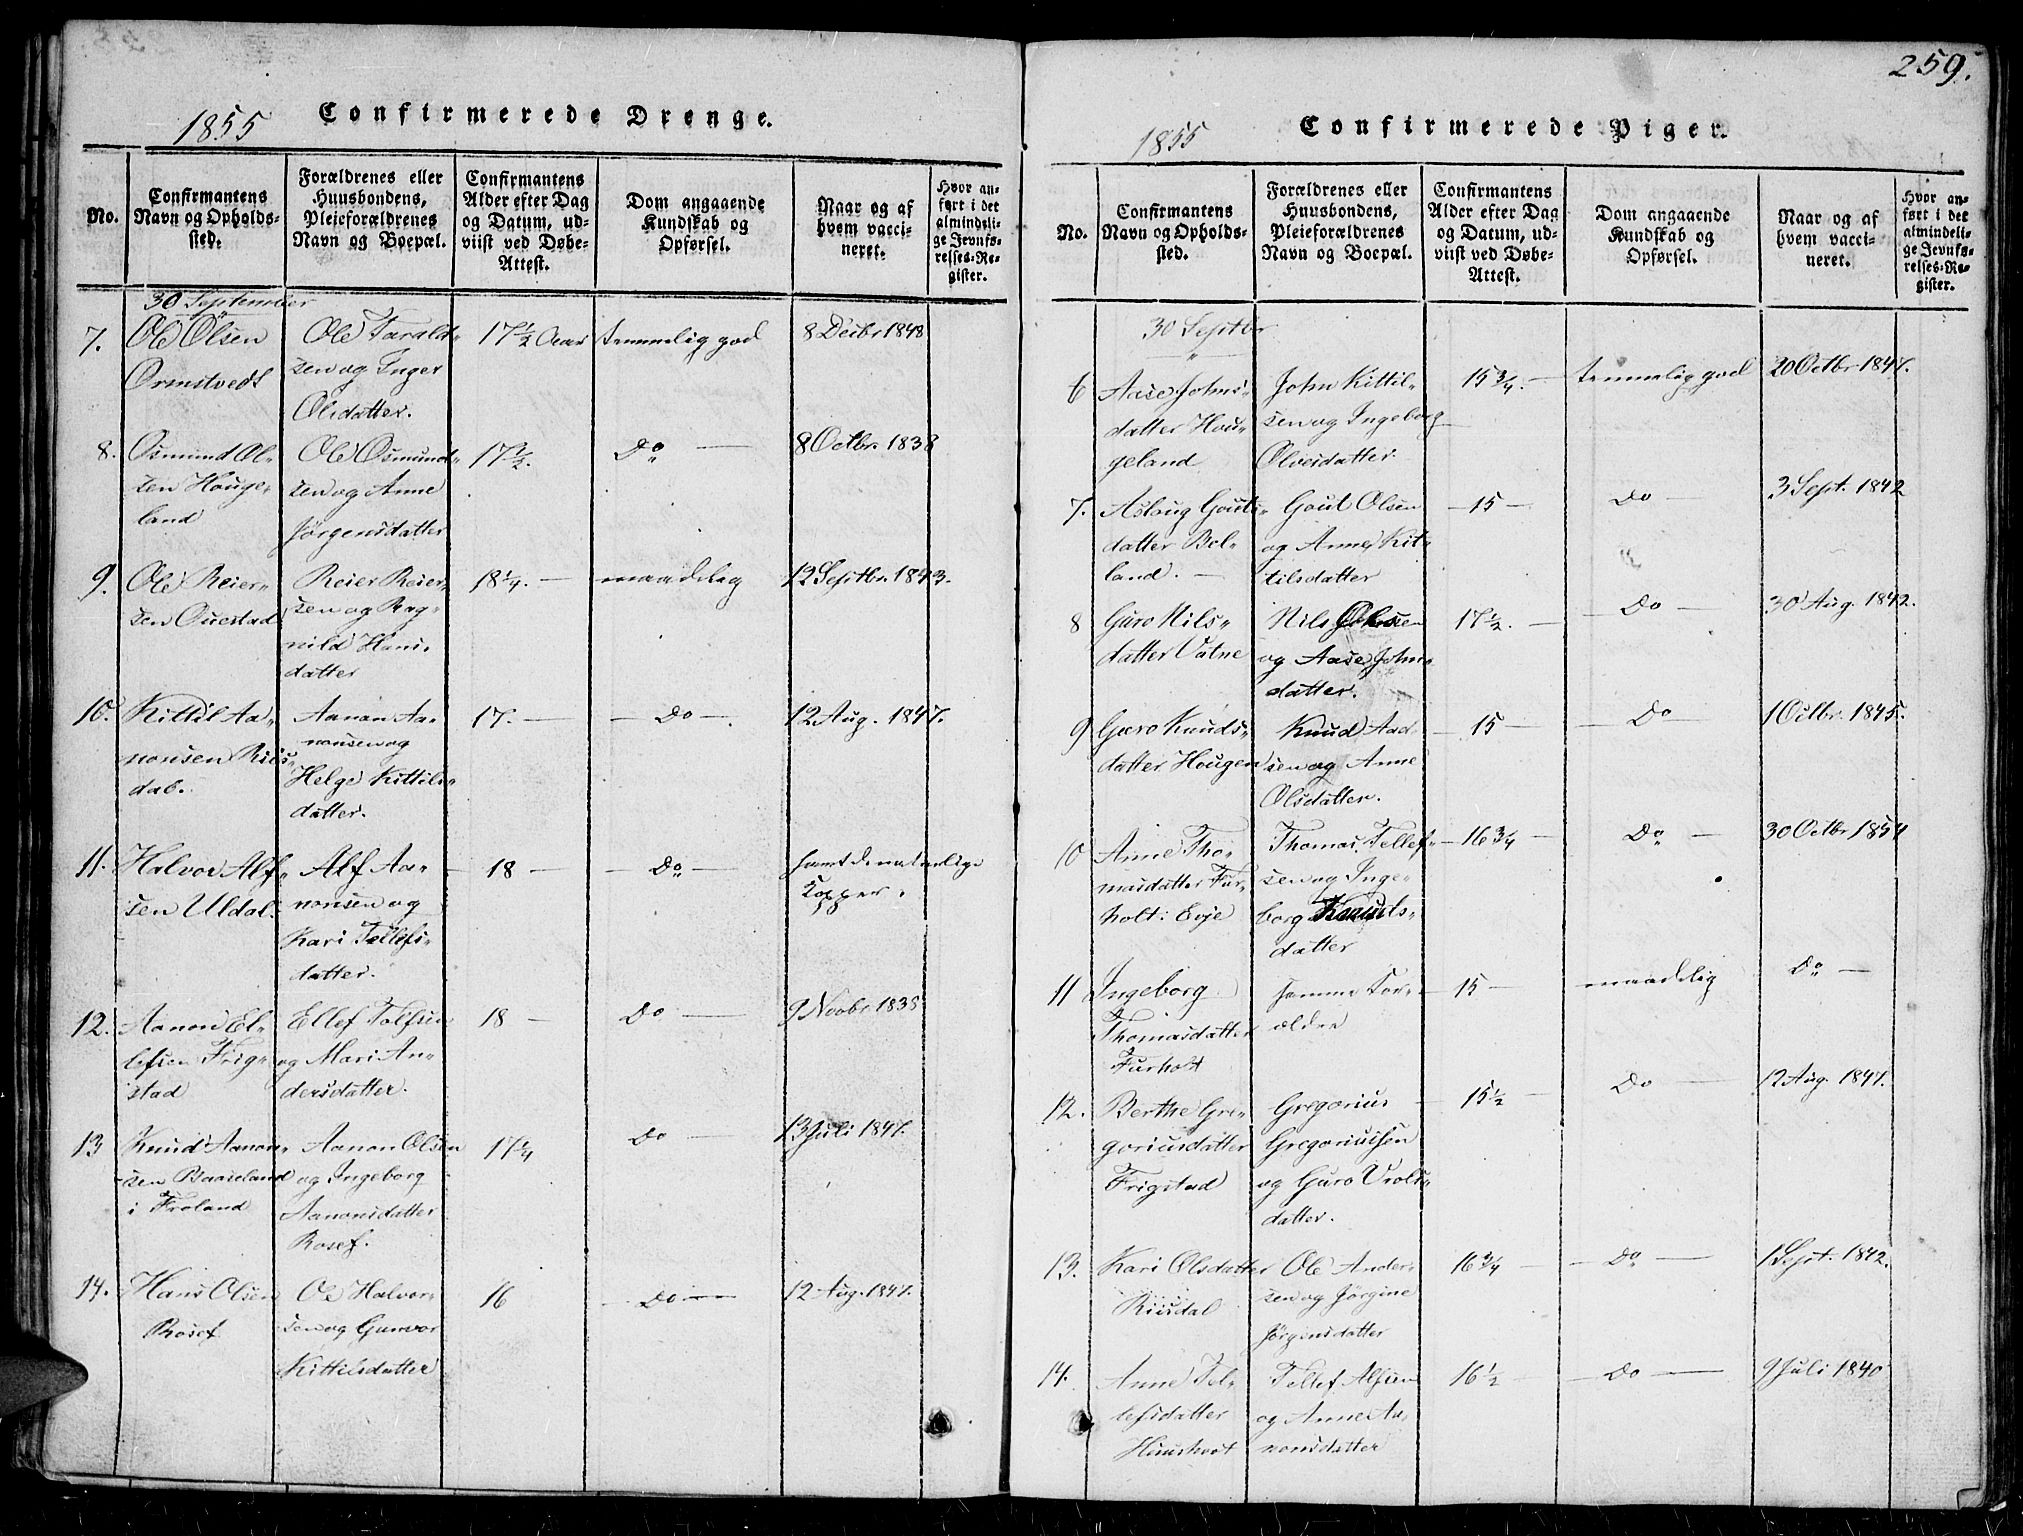 259.
1855
Confirmerede Drenge.
No.
Confirmantens
Navn og Opholds-
sted.
Forældrenes eller
Huusbondens,
Pleieforældrenes
Navn og Boepæl.
Confirmantens
Alder efter Dag
og Datum, ud-
viist ved Døbe-
Attest.
Dom angaaende
Kundskab og
Opførsel.
Naar og af
hvem vacci-
neret.
Hvor an-
ført i det
almindeli-
ge Jevnfø-
relses-Re-
gister.
30 September
7.
Ole Olsen
Ormstvedt
Ole Tarald-
sen og Inger
Olsdatter.
17 1/2 Aar
temmelig god
8 Decbr 1848
8.
Osmund Ol-
sen Houge-
land
Ole Osmund-
sen og Anne
Jørgensdatter
17 1/2.
Do —
8 Octbr. 1838
9.
Ole Reier-
sen Ouestad
Reier Reier-
sen og Rag-
nild Hans-
datter
18 1/4. —
maadelig
12 Septbr 1843.
10.
Kittil Aa-
nonsen Riis-
dal.
Aanon Aa-
nonsen og
Helge Kittils-
datter.
17. —
— Do —.
12 Aug. 1847.
11.
Halvor Alf-
sen Uldal.
Alf Aa-
nonsen og
Kari Tellefs-
datter.
— 18 —
— Do —
havt de naturlige
Kopper.
12.
Aanon El-
lefsen Frig-
stad
Ellef Tolfsen
og Mari An-
dersdatter.
18 —
Do —
9 Novbr 1838
13
Knud Aanon-
sen Baaseland
i Froland
Aanon Olsen
og Ingeborg
Aanonsdatter
Rosef.
17 1/4
Do —
13 Juli 1847.
14.
Hans Olsen
Rosef
Ole Halvor-
sen og Gunvor
Kittilsdatter
16
— Do —
12 Aug. 1847.
1855
Confirmerede Piger.
No.
Confirmantens
Navn og Opholds-
sted.
Forældrenes eller
Huusbondens,
Pleieforældrenes
Navn og Boepæl.
Confirmantens
Alder efter Dag
og Datum, ud-
viist ved Døbe-
Attest.
Dom angaaende
Kundskab og
Opførsel.
Naar og af
hvem vacci-
neret.
Hvor an-
ført i det
almindeli-
ge Jevnfø-
relses-Re-
gister.
30 Septbr
6
Aase Johns-
datter Hou-
geland
John Kittil-
sen og Ingeborg
Olvesdatter.
15 3/4. —
temmelig god
20 Octbr 1847.
7.
Aslaug Gouts-
datter Bel-
land. —
Gout Olsen
og Anne Kit-
tilsdatter
— 15 —
Do —
3 Sept. 1842
8
Guro Nils-
datter Vatne
Nils
og Aase John-
datter.
17 1/2. —
— Do —
30 Aug. 1842.
9
Guro Knuds-
datter Hougen
Knud Aad-
sen og Anne
Olsdatter.
— 15 —
— Do
1 Octbr. 1845.
10
Anne Tho-
masdatter Fur-
holt: Evje
Thomas Tellef-
sen og Inge-
borg Knuds-
datter
— 16 3/4 —
Do —
30 Octbr 1854
11
Ingeborg
Thomasdatter
Furholt
samme For-
ældre
— 15 —
maadelig
Do —
12.
Berthe Gre-
goriusdatter
Frigstad
Gregorius
Gregoriussen
og Guro Vrols-
datter.
— 15 1/2 —
Do —
12 Aug. 1847.
13.
Kari Olsdatter
Riisdal
Ole Ander-
sen og Jørgine
Jørgensdatter
16 3/4 —
— Do —
1 Sept. 1842.
14.
Anne Tel-
lefsdatter
Huusholt
Tellef Alfsen
og Anne Aa-
nonsdatter
16 1/2 —
— Do —
9 Juli 1840